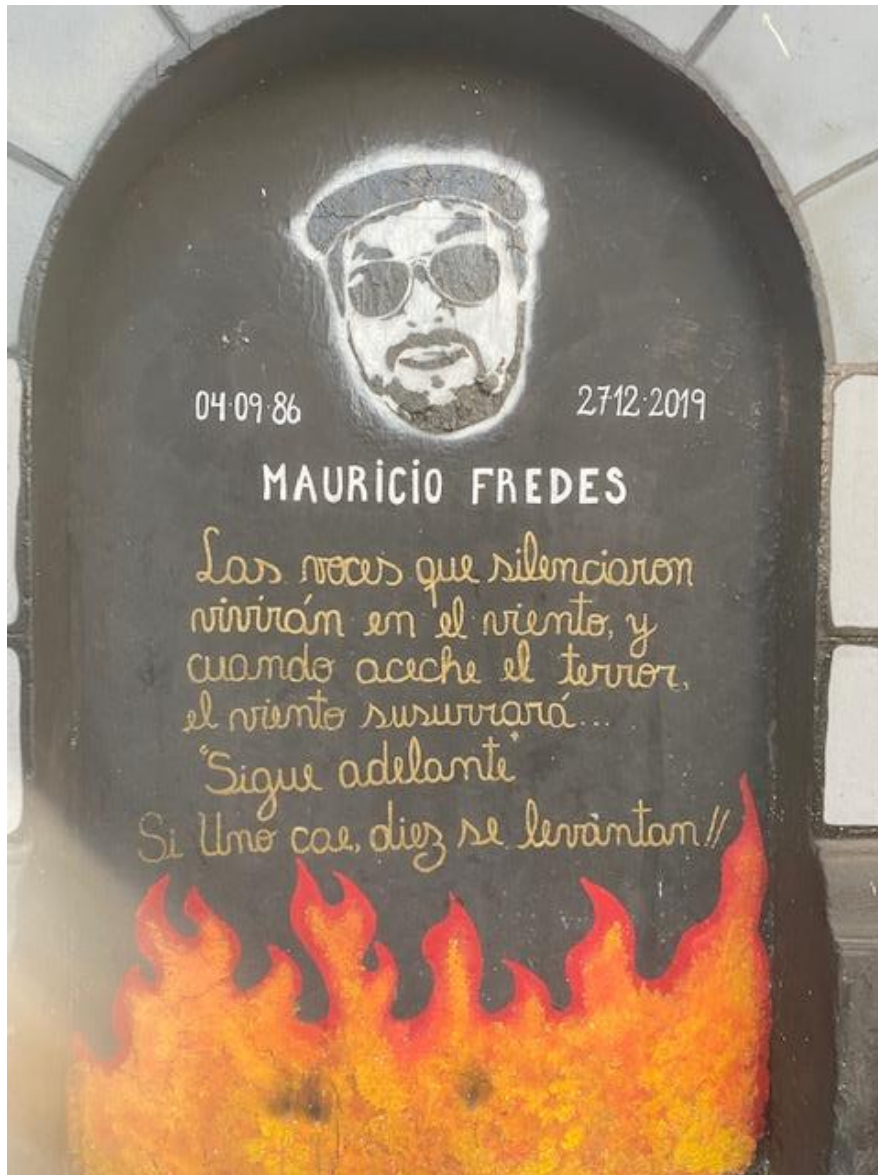 04·09·86
27·12·2019
MAURICIO FREDES
Las voces que silenciaron
vivirán en el viento, y
cuando aceche el terror,
el viento susurrará...
"Sigue adelante"
Si Uno cae, diez se levantan!!